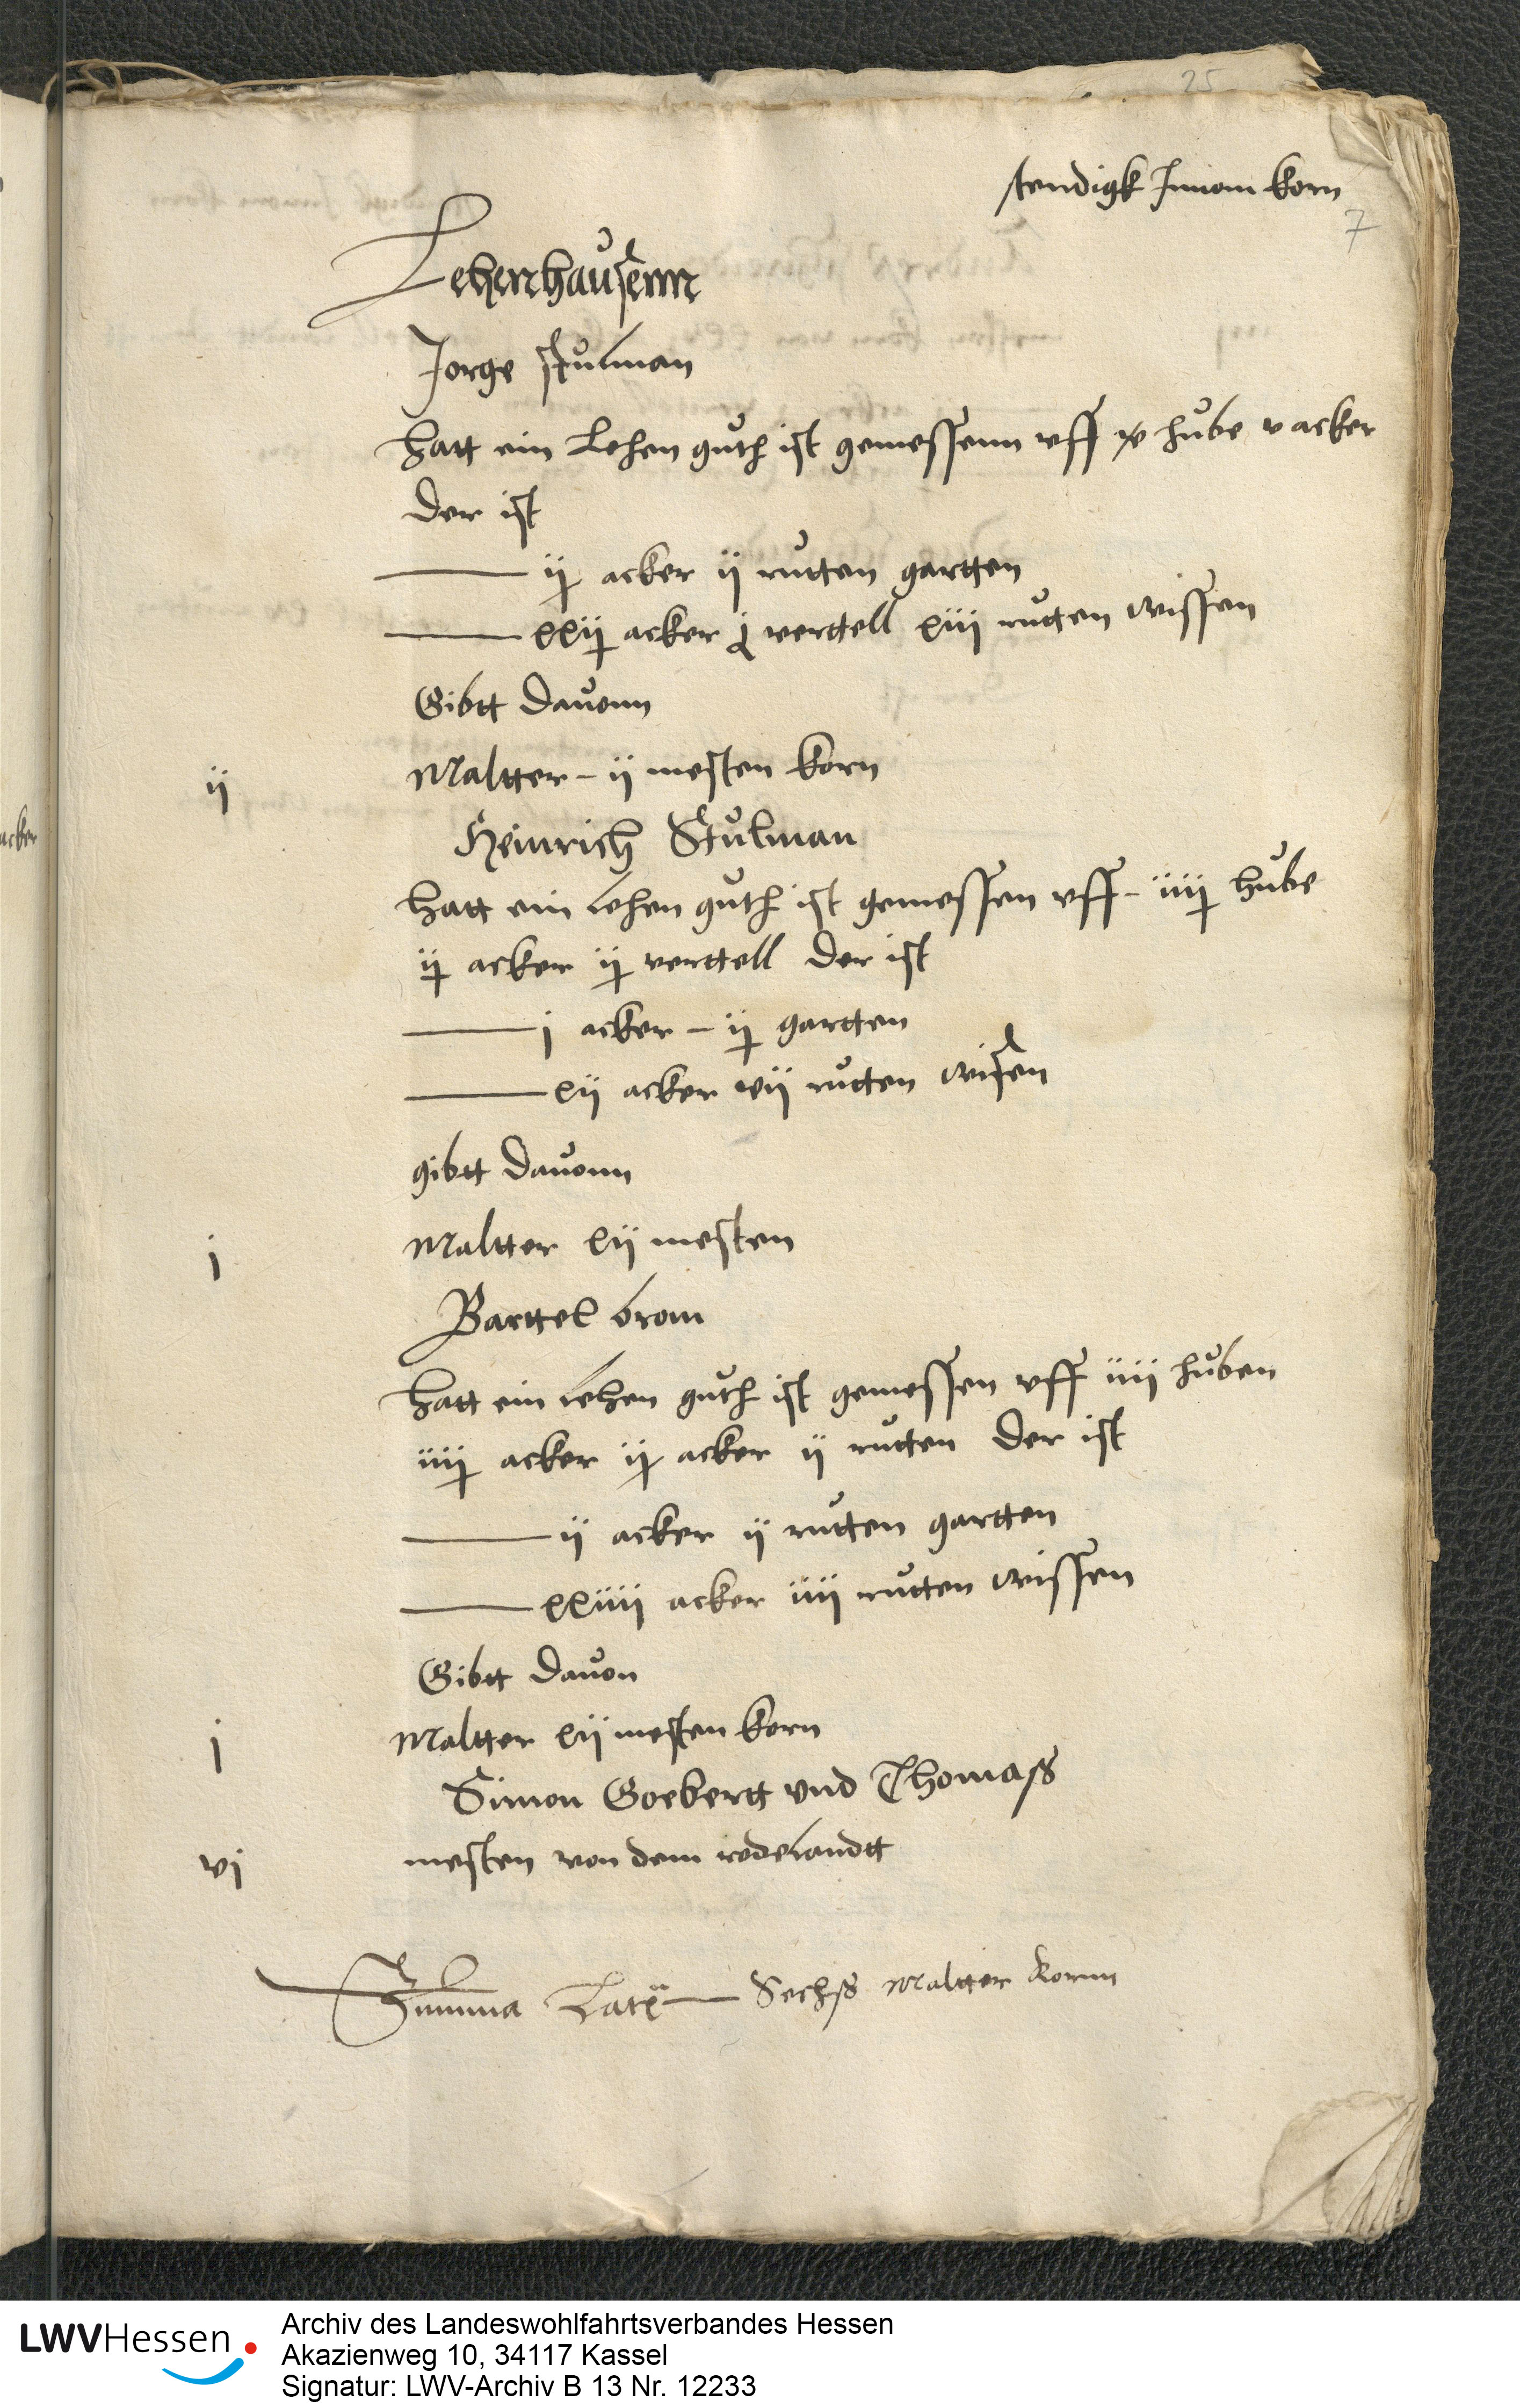 25
stendigk Innom korn
7
Lehenhausenn
Jorge Stulman
hatt ein Lehen guth ist gemessenn uff hube v acker
der ist
ij acker ij rutten gartten
xxij acker j vertell xiij rutten wissen
Gibtt davonn
ij Maltter - ij mesten korn
Heinrich Stulman
hatt ein lehen guth ist gemessen uff - iiij hube
ij acker ij vertell der ist
j acker - ij gartten
xij acker vij rutten wisen
gibtt davonn
j Maltter xij mesten
Barttel brom
hatt ein lehen guth ist gemessen uff iiij huben
iiij acker ij acker ij rutten der ist
ij acker ij rutten gartten
xxiiij acker iiij rutten wissen
Gibtt davon
j Maltter xij mesten korn
Simon Goebertt und Thomaß
vj mesten von dem rodelandtt
Summa Lat Sechß Maltter kornn
acker
LWVHessen
Archiv des Landeswohlfahrtsverbandes Hessen
Akazienweg 10, 34117 Kassel
Signatur: LWV-Archiv B 13 Nr. 12233